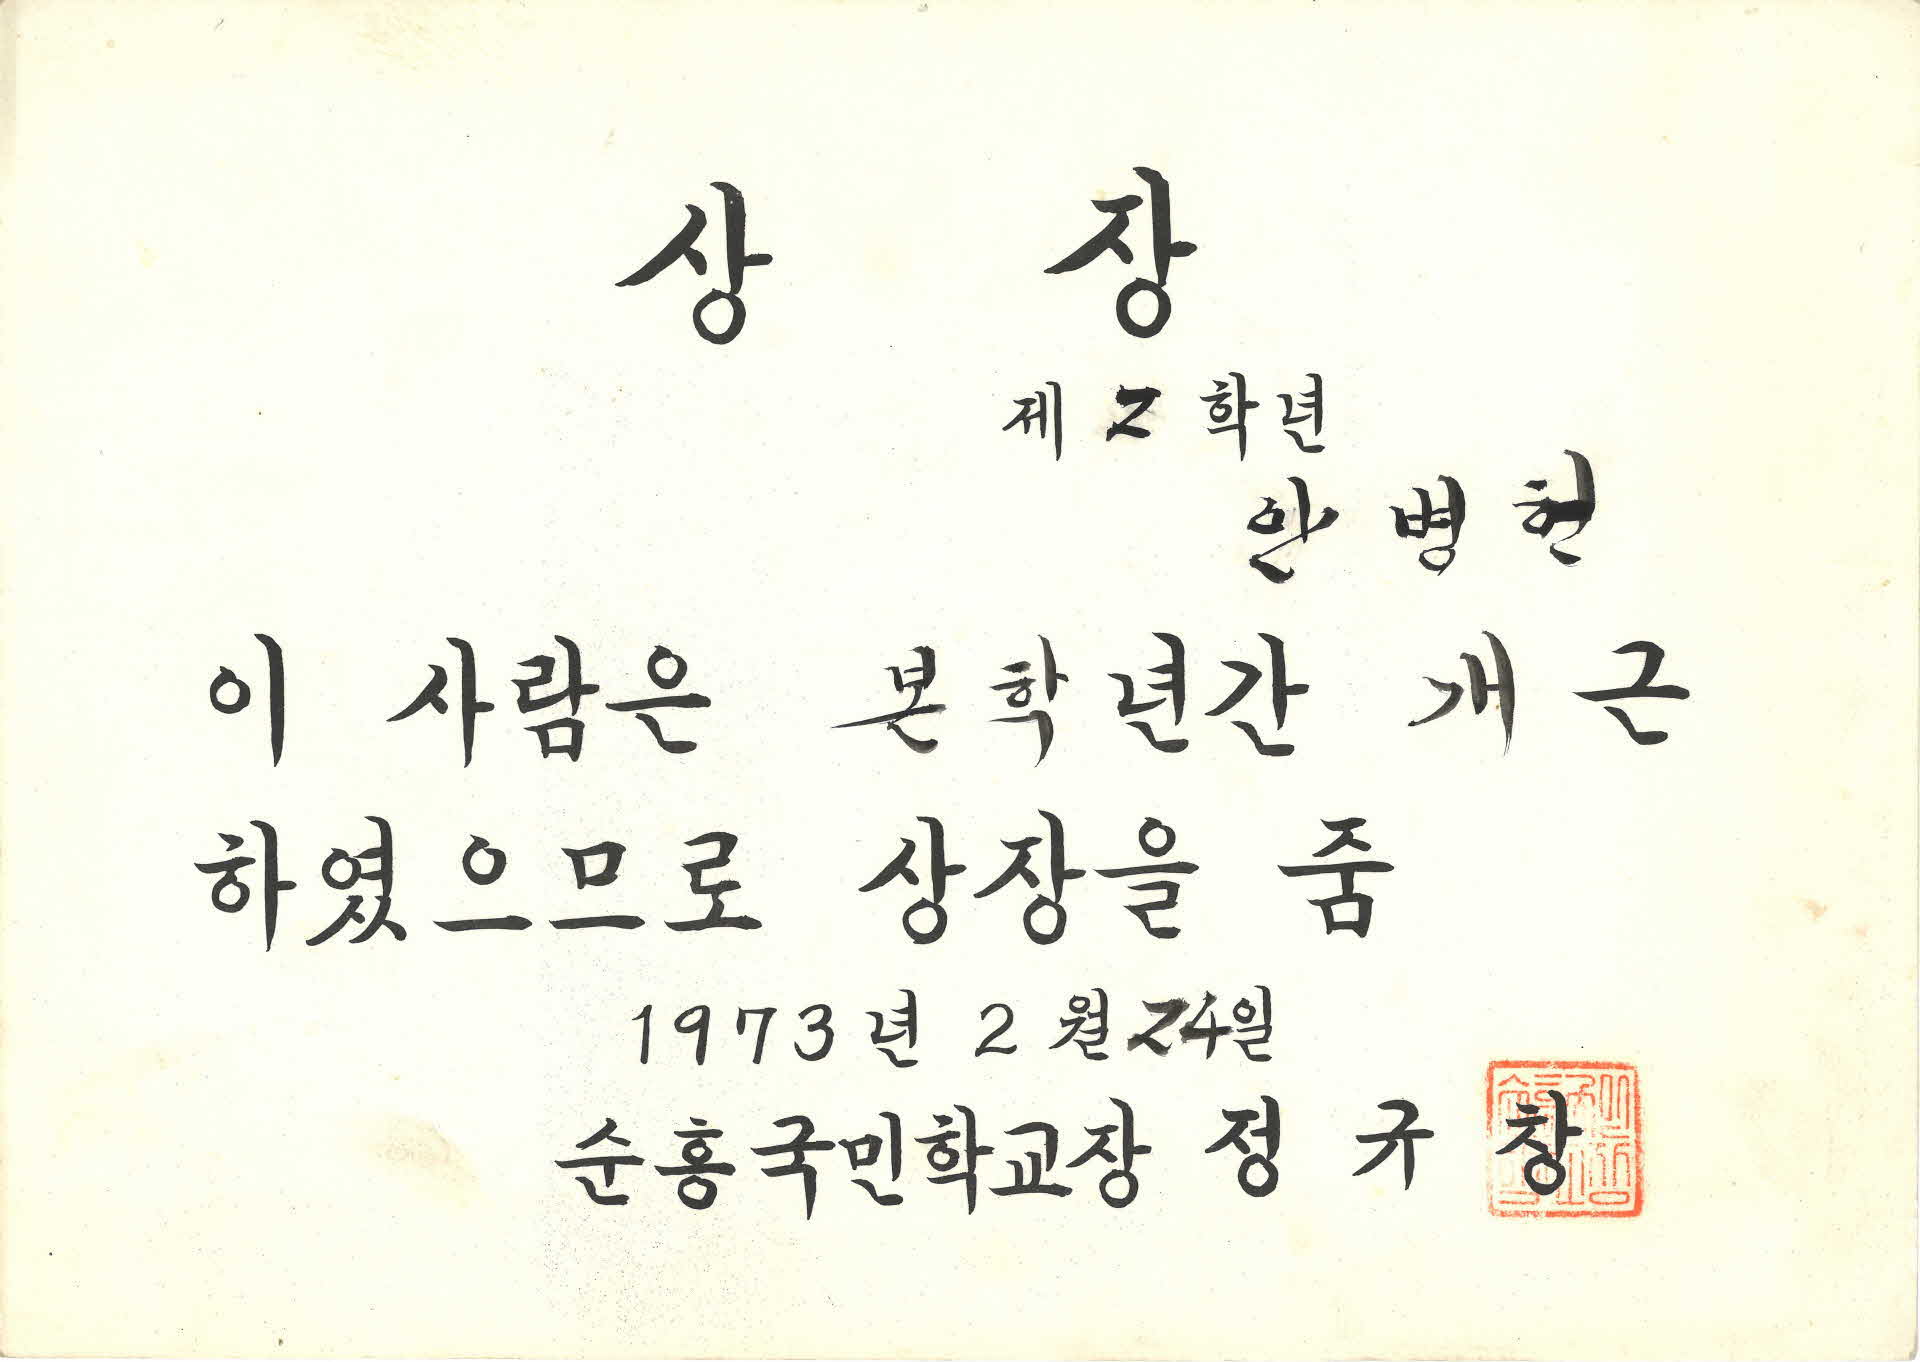 상 장
제 2 학년
안 병 현
이 사람은 본학년간 개근
하였으므로 상장을 줌
1973년 2월 24일
순흥국민학교장 정규창